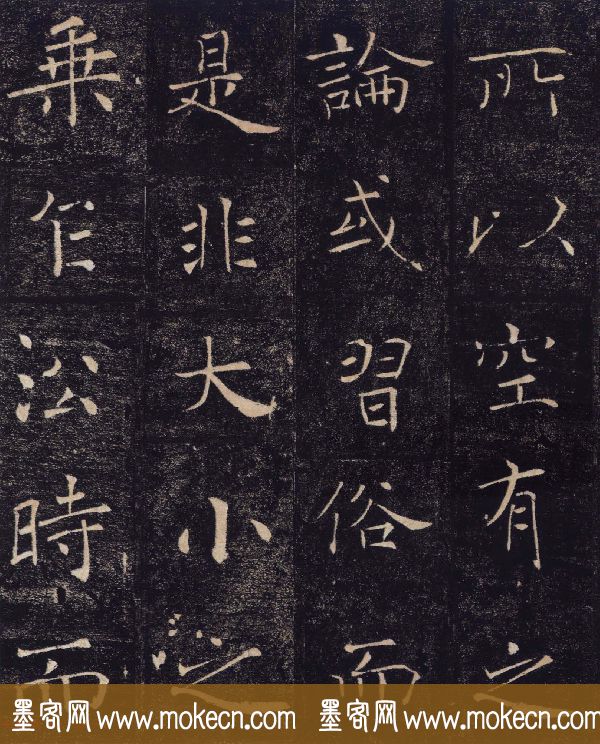 所以空有之
論或習俗而
是非大小乘
乗乍㳂時而
墨客网 www.mokecn.com 墨客网 www.mokecn.com